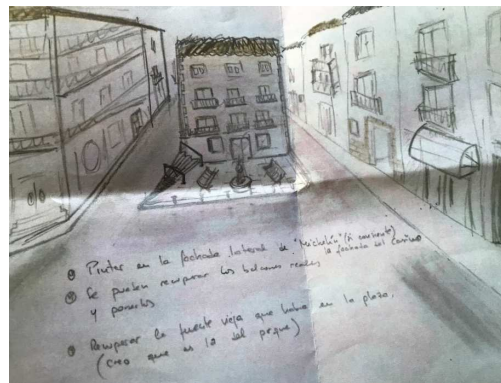 Pintar en la fachada lateral de "Michelin" (a continuar)
la fachada del Casino
Se pueden recuperar los balcones reales
y ponerlos
Recuperar la fuente vieja que había en la plaza.
(creo que es la del parque)